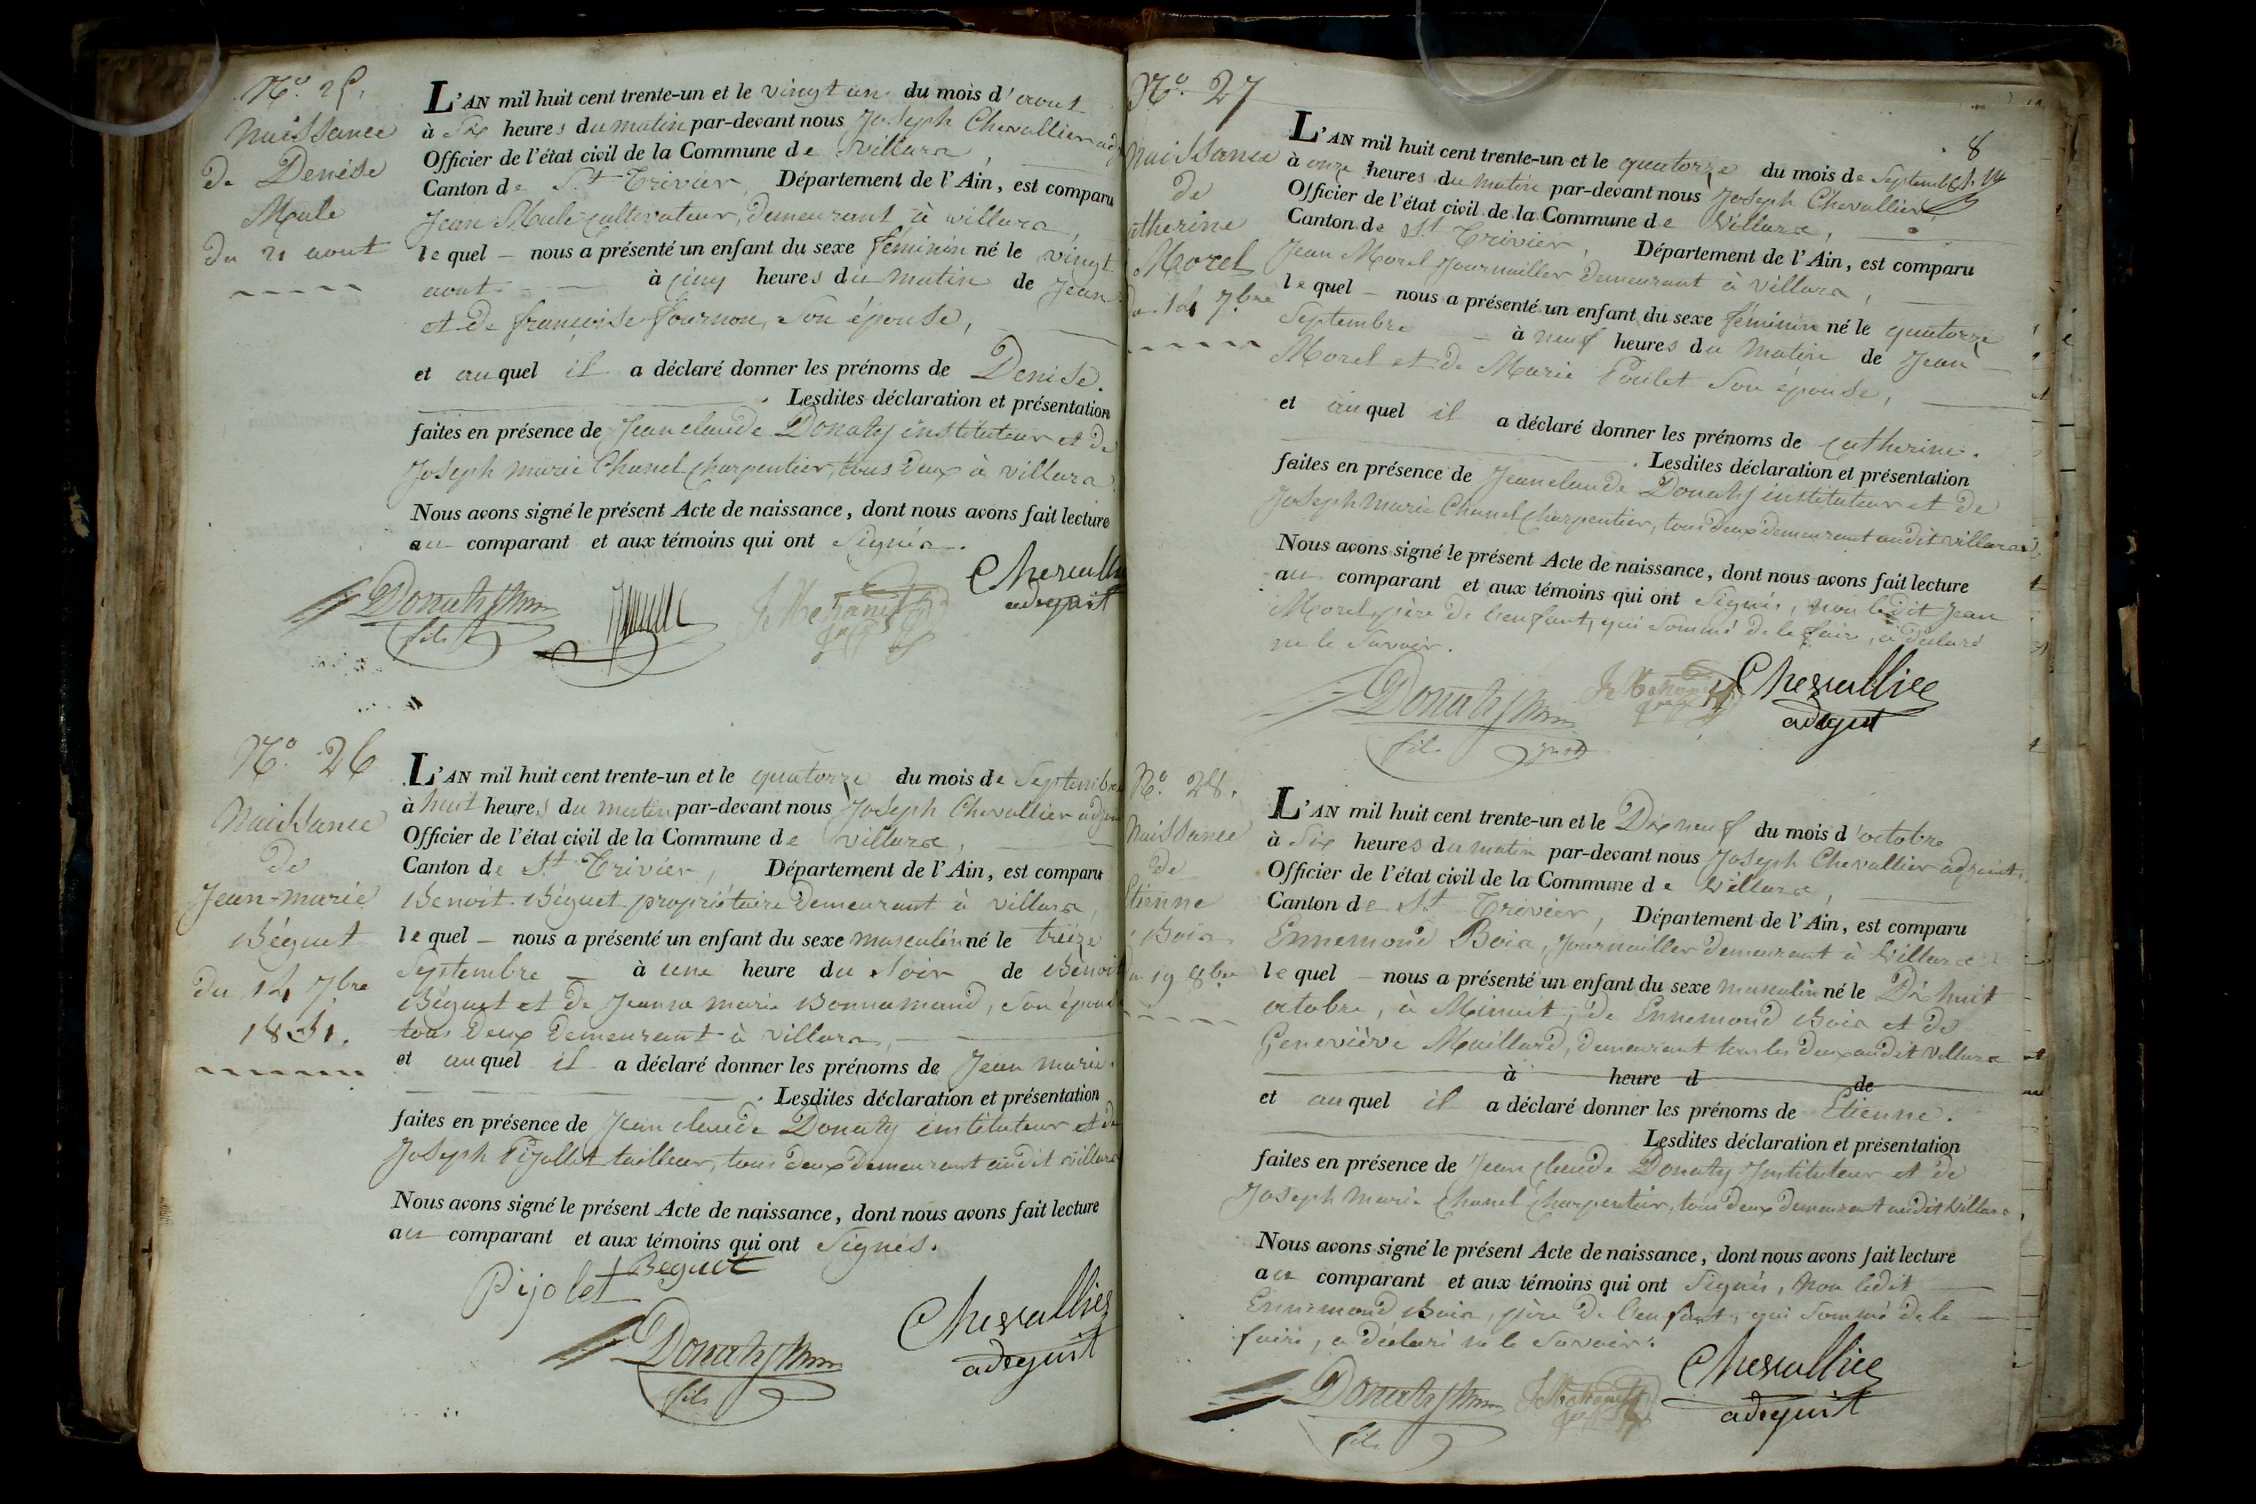 N.o 25.
Naissance
de Denise
Mule
du 21 aout
L'AN mil huit cent trente-un et le vingt un du mois d'aout
à six heures du matin par-devant nous Joseph Chevallier adj
Officier de l'état civil de la Commune de Villars,
Canton de St Trivier, Département de l'Ain, est comparu
Jean Mule cultivateur, demeurant à villars,
lequel — nous a présenté un enfant du sexe féminin né le vingt
aout — à cinq heures du matin de Jean
et de françoise fournon, son épouse,
et auquel il a déclaré donner les prénoms de Denise.
Lesdites déclaration et présentation
faites en présence de Jean claude Donaty instituteur et de
Joseph marie Chanel charpentier, tous deux à villars
Nous avons signé le présent Acte de naissance, dont nous avons fait lecture
au comparant et aux témoins qui ont signés.
Chevalli
adjoint
Donaty
fils
N.o 26
Naissance
de
Jean-marie
Béguet
du 14 7bre
1831.
L'AN mil huit cent trente-un et le quatorze du mois de Septembre
à huit heures du matin par-devant nous Joseph Chevallier adjoin
Officier de l'état civil de la Commune de villars,
Canton de St Trivier, Département de l'Ain, est comparu
Benoit Béguet propriétaire demeurant à villars,
lequel — nous a présenté un enfant du sexe masculin né le treize
Septembre — à une heure du soir de Benoit
Béguet et de Jeanne marie Bonnamand, son épouse
tous deux demeurant à villars,
et auquel il a déclaré donner les prénoms de Jean marie.
Lesdites déclaration et présentation
faites en présence de Jean claude Donaty instituteur et de
Joseph Pijollet tailleur, tous deux demeurant audit villars
Nous avons signé le présent Acte de naissance, dont nous avons fait lecture
au comparant et aux témoins qui ont signés.
Pijolet Béguet
Chevallier
adjoint
Donaty
fils
N.o 27
8
Naissance
de
atherine
Morel
du 14 7bre
L'AN mil huit cent trente-un et le quatorze du mois de Septembre
à onze heures du matin par-devant nous Joseph Chevallier
Officier de l'état civil de la Commune de Villars,
Canton de St Trivier, Département de l'Ain, est comparu
Jean Morel Journallier demeurant à villars,
lequel — nous a présenté un enfant du sexe féminin né le quatorze
Septembre — à neuf heures du matin de Jean
Morel et de Marie Poulet son épouse,
et auquel il a déclaré donner les prénoms de catherine.
Lesdites déclaration et présentation
faites en présence de Jean claude Donaty instituteur et de
Joseph Marie Chanel charpentier, tous deux demeurant audit villars.
Nous avons signé le présent Acte de naissance, dont nous avons fait lecture
au comparant et aux témoins qui ont signés, non ledit Jean
Morel, père de l'enfant, qui sommé de le faire, a déclaré
ne le savoir.
Chevallier
adjoint
Donaty
fils
N.o 28.
Naissance
de
Etienne
Bois
du 19 8bre
L'AN mil huit cent trente-un et le Dix neuf du mois d'octobre
à six heures du matin par-devant nous Joseph Chevallier adjoint
Officier de l'état civil de la Commune de Villars,
Canton de St Trivier, Département de l'Ain, est comparu
Ennemond Bois, Journallier demeurant à Villars
lequel — nous a présenté un enfant du sexe masculin né le Dix huit
octobre, à Minuit, de Ennemond Bois et de
Geneviève Maillard, demeurant tous les deux audit Villars
à heure d de
et auquel il a déclaré donner les prénoms de Etienne.
Lesdites déclaration et présentation
faites en présence de Jean claude Donaty Instituteur et de
Joseph Marie Chanel Charpentier, tous deux demeurant audit Villars,
Nous avons signé le présent Acte de naissance, dont nous avons fait lecture
au comparant et aux témoins qui ont signés, non ledit
Ennemond Bois, père de l'enfant, qui sommé de le
faire, a déclaré ne le savoir.
Chevallier
adjoint
Donaty
fils